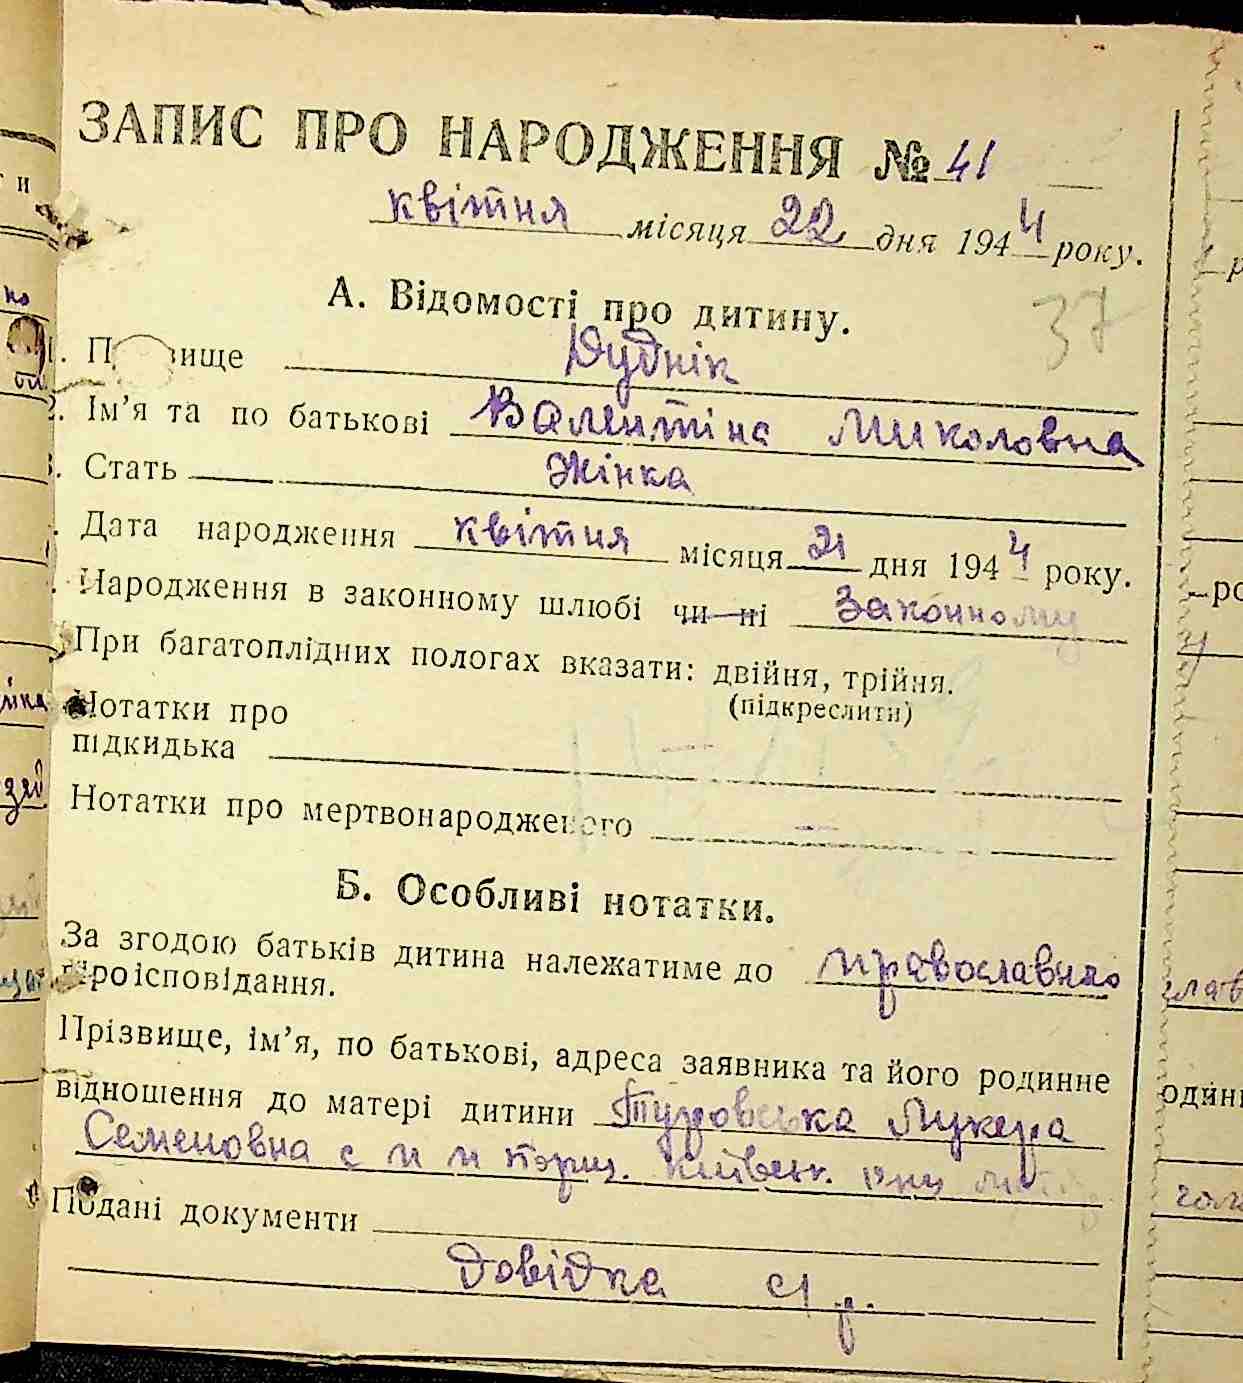 ЗАПИС ПРО НАРОДЖЕННЯ № 41
квітня місяця 22 дня 1944 року.
А. Відомості про дитину.
37
1. Прізвище Дуднік
2. Ім'я та по батькові Валентіна Миколовна
3. Стать Жінка
Дата народження квітня місяця 21 дня 1944 року.
Народження в законному шлюбі чи ні Законному
При багатоплідних пологах вказати: двійня, трійня.
(підкреслити)
Нотатки про
підкидька
Нотатки про мертвонародженого
Б. Особливі нотатки.
За згодою батьків дитина належатиме до православно
віроісповідання.
Прізвище, ім'я, по батькові, адреса заявника та його родинне
відношення до матері дитини Туровська Лукера
Семеновна с м м Київськ. рну
Подані документи
довідка с/р.